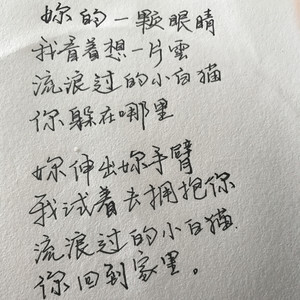 妳的一颗眼睛
我看着想一片雲
流浪过的小白猫
你躲在哪里
妳伸出妳手臂
我试着去拥抱你
流浪过的小白猫
你回到家里。